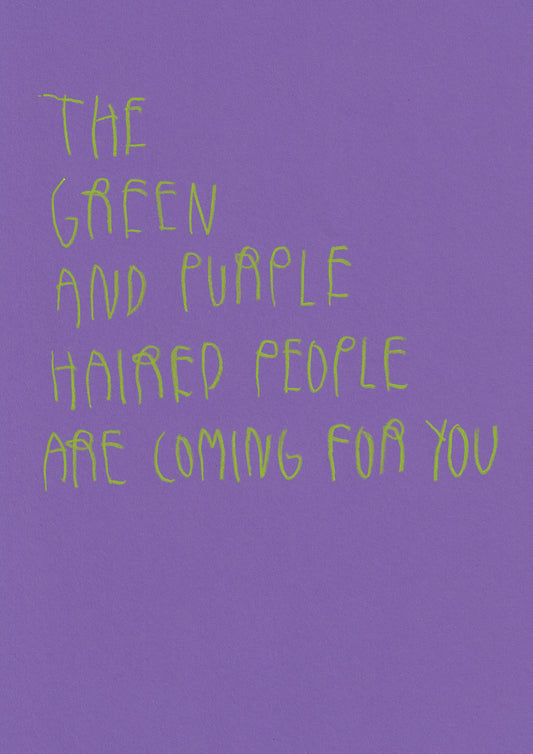 THE
GREEN
AND PURPLE
HAIRED PEOPLE
ARE COMING FOR YOU